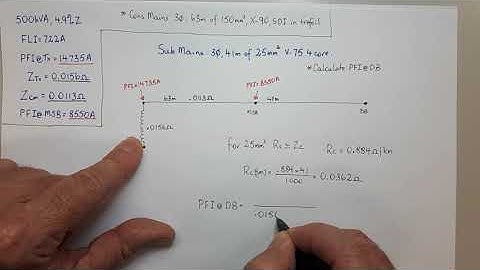 500kVA, 4.9%Z
FLI=722A
PFI@Tx = 14735A
ZTx = 0.0156Ω
Zcm = 0.0113Ω
PFI@MSB = 8550A
* Cons Mains 3Ø, 63m of 150mm², X-90, SDI in trefoil
Sub Mains 3Ø, 41m of 25mm² V-75 4 core.
* Calculate PFI@DB
PFI=14735A
PFI=8550A
63m .0113Ω 41m
MSB DB
.0156Ω
for 25mm² Rc = Zc Rc = 0.884Ω/km
Rc(sm) = .884 × 41 / 1000 = 0.0362Ω
PFI @ DB =
.0156